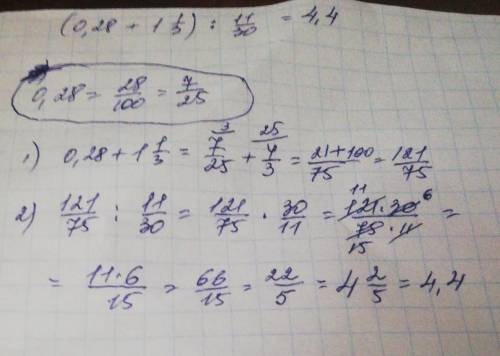 (0,28 + 1 1/3) : 11/30 = 4,4
0,28 = 28/100 = 7/25
1) 0,28 + 1 1/3 = 7/25 (3) + 4/3 (25) = 21+100/75 = 121/75
2) 121/75 : 11/30 = 121/75 · 30/11 = 121·30/75·11 (11, 6, 15) =
= 11·6/15 = 66/15 = 22/5 = 4 2/5 = 4,4